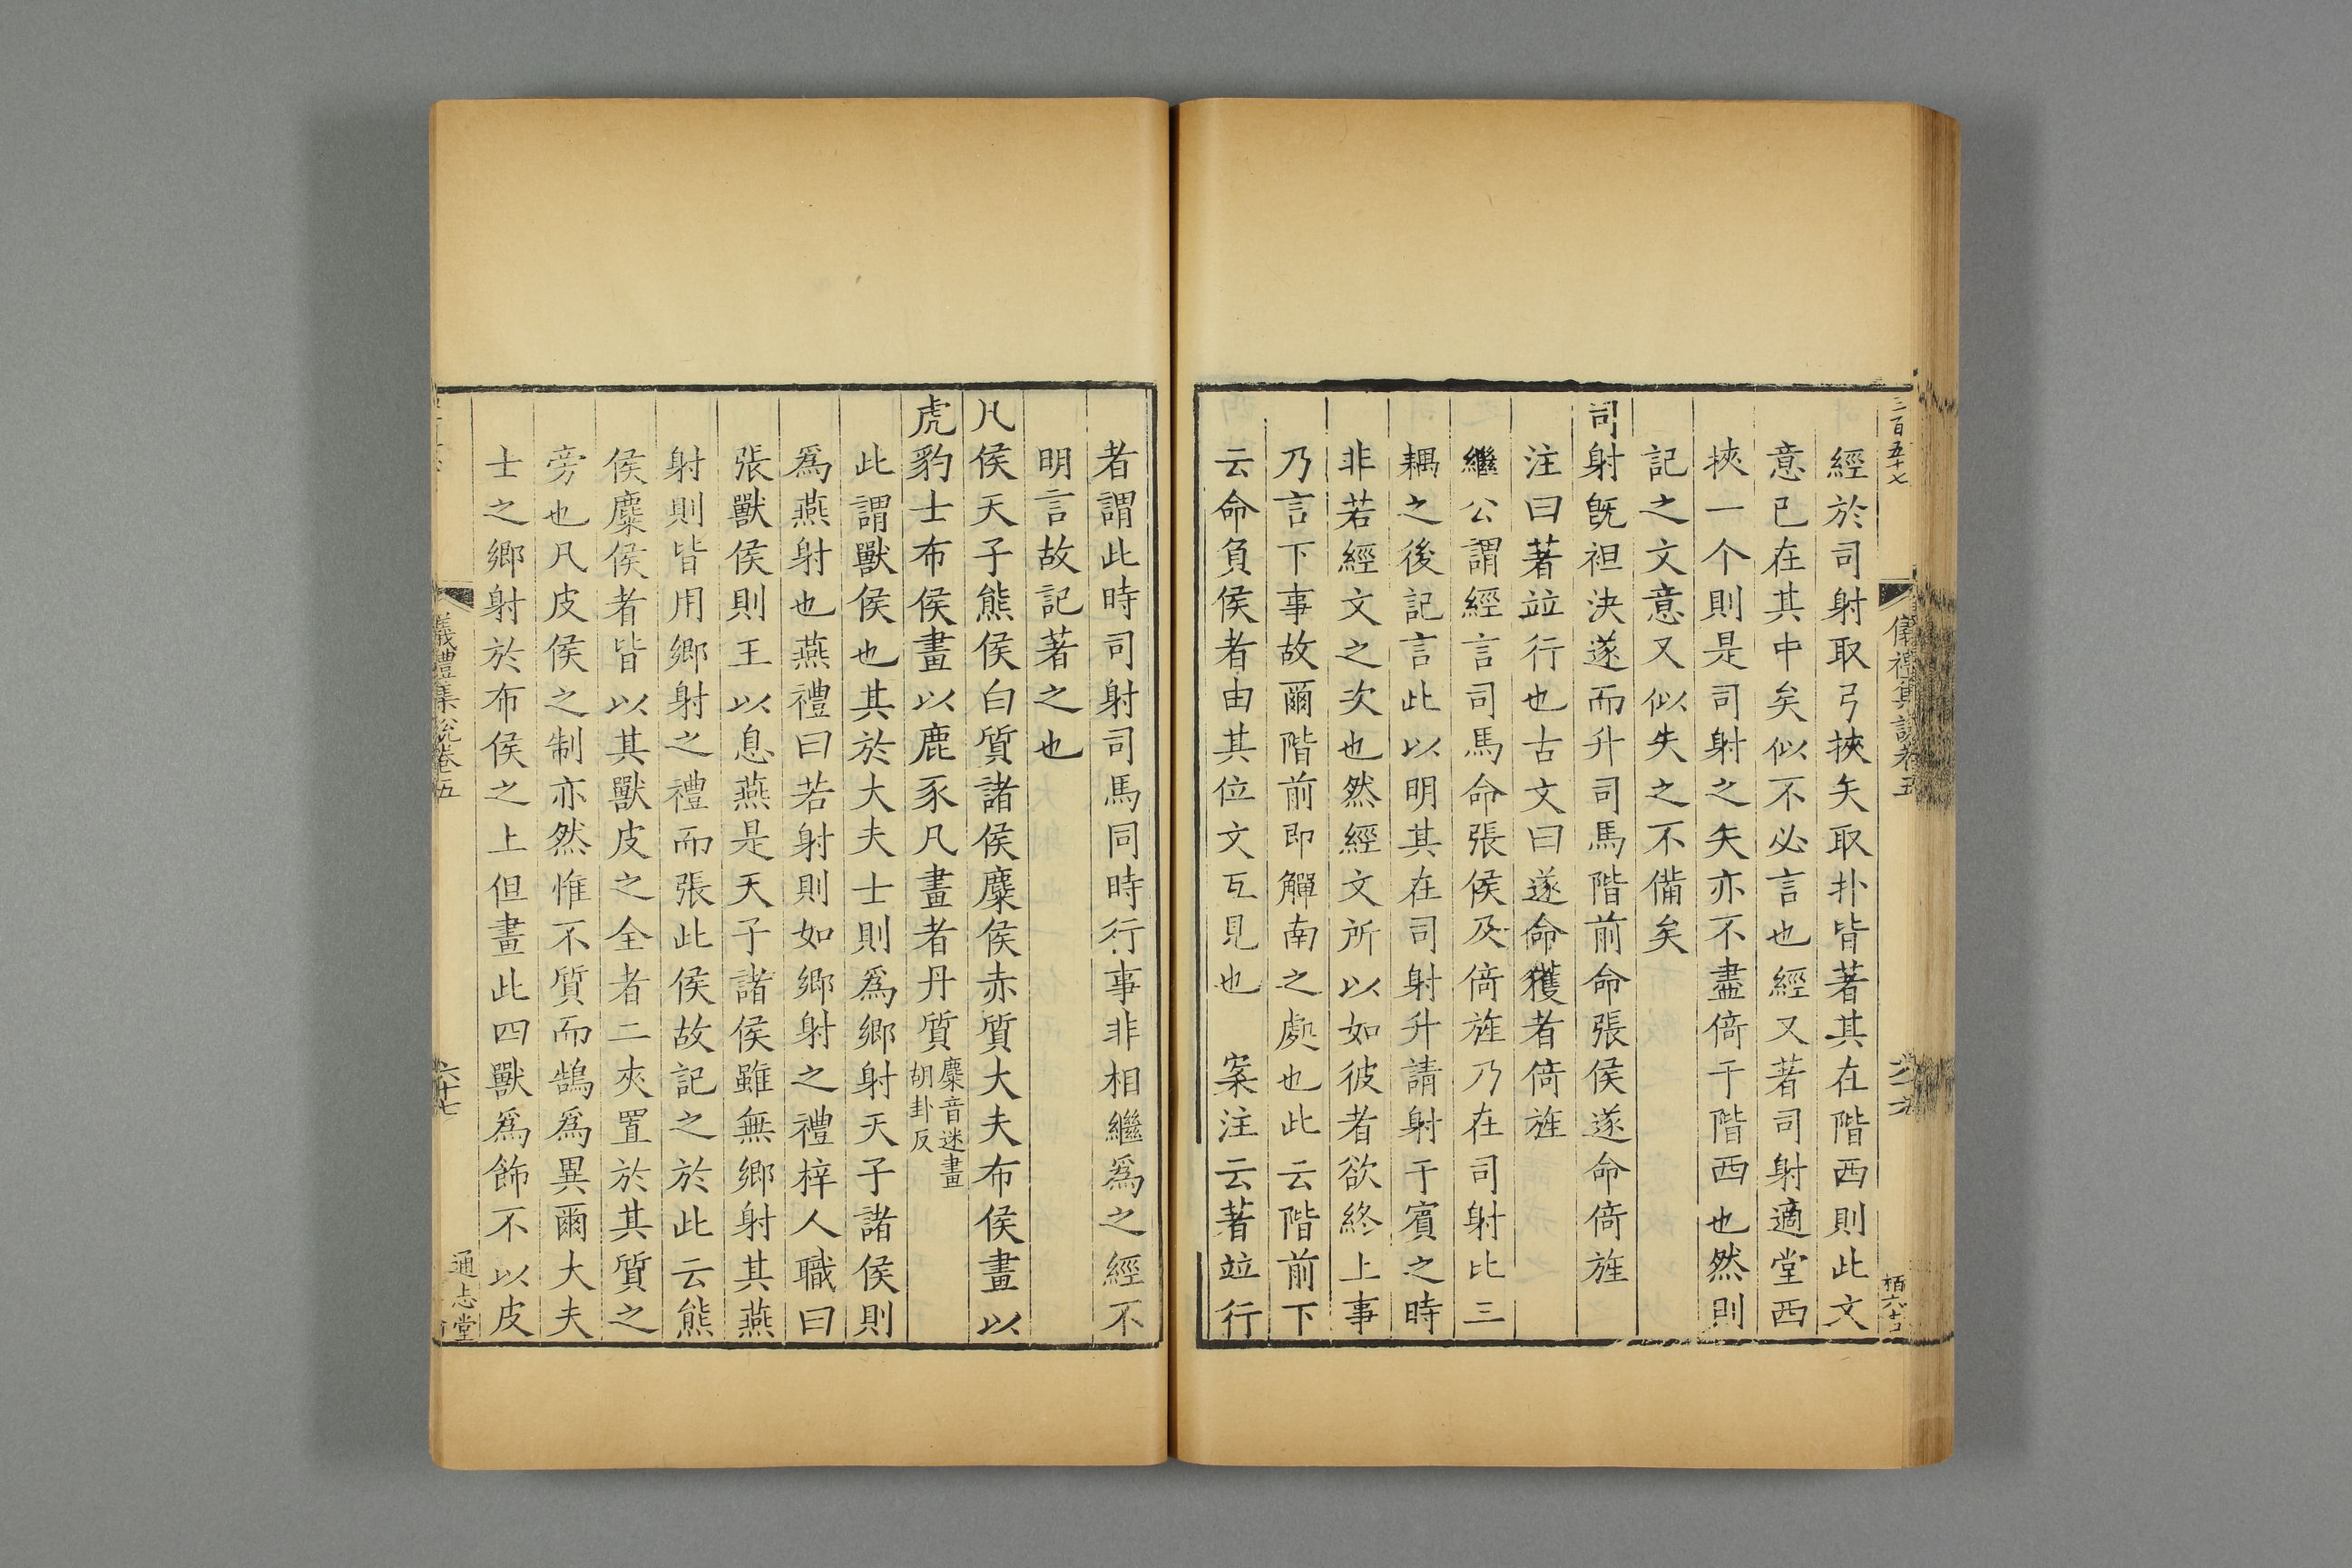 三百五十七
經於司射取弓挾矢取扑皆著其在階西則此文
意已在其中矣似不必言也經又著司射適堂西
挾一个則是司射之矢亦不盡倚于階西也然則
記之文意又似失之不備矣
司射旣袒決遂而升司馬階前命張侯遂命倚旌
注曰著竝行也古文曰遂命獲者倚旌
繼公謂經言司馬命張侯及倚旌乃在司射比三
耦之後記言此以明其在司射升請射于賓之時
非若經文之次也然經文所以如彼者欲終上事
乃言下事故爾階前即觶南之處也此云階前下
云命負侯者由其位文互見也　案注云著竝行
者謂此時司射司馬同時行事非相繼爲之經不
明言故記著之也
凡侯天子熊侯白質諸侯麋侯赤質大夫布侯畫以
虎豹士布侯畫以鹿豕凡畫者丹質麋音迷畫胡卦反
此謂獸侯也其於大夫士則爲鄉射天子諸侯則
爲燕射也燕禮曰若射則如鄉射之禮梓人職曰
張獸侯則王以息燕是天子諸侯雖無鄉射其燕
射則皆用鄉射之禮而張此侯故記之於此云熊
侯麋侯者皆以其獸皮之全者二夾置於其質之
旁也凡皮侯之制亦然惟不質而鵠爲異爾大夫
士之鄉射於布侯之上但畫此四獸爲飾不以皮
儀禮集說卷五
六十七
通志堂